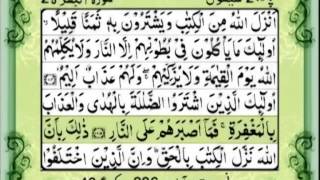 اَنْزَلَ اللّٰهُ مِنَ الْكِتٰبِ وَيَشْتَرُوْنَ بِهٖ ثَمَنًا قَلِيْلًا ۙ
اُولٰٓئِكَ مَا يَاْكُلُوْنَ فِيْ بُطُوْنِهِمْ اِلَّا النَّارَ وَلَا يُكَلِّمُهُمُ
اللّٰهُ يَوْمَ الْقِيٰمَةِ وَلَا يُزَكِّيْهِمْ ۖ وَلَهُمْ عَذَابٌ اَلِيْمٌ
اُولٰٓئِكَ الَّذِيْنَ اشْتَرَوُا الضَّلٰلَةَ بِالْهُدٰى وَالْعَذَابَ
بِالْمَغْفِرَةِ ۚ فَمَآ اَصْبَرَهُمْ عَلَى النَّارِ ذٰلِكَ بِاَنَّ
اللّٰهَ نَزَّلَ الْكِتٰبَ بِالْحَقِّ ؕ وَاِنَّ الَّذِيْنَ اخْتَلَفُوْا